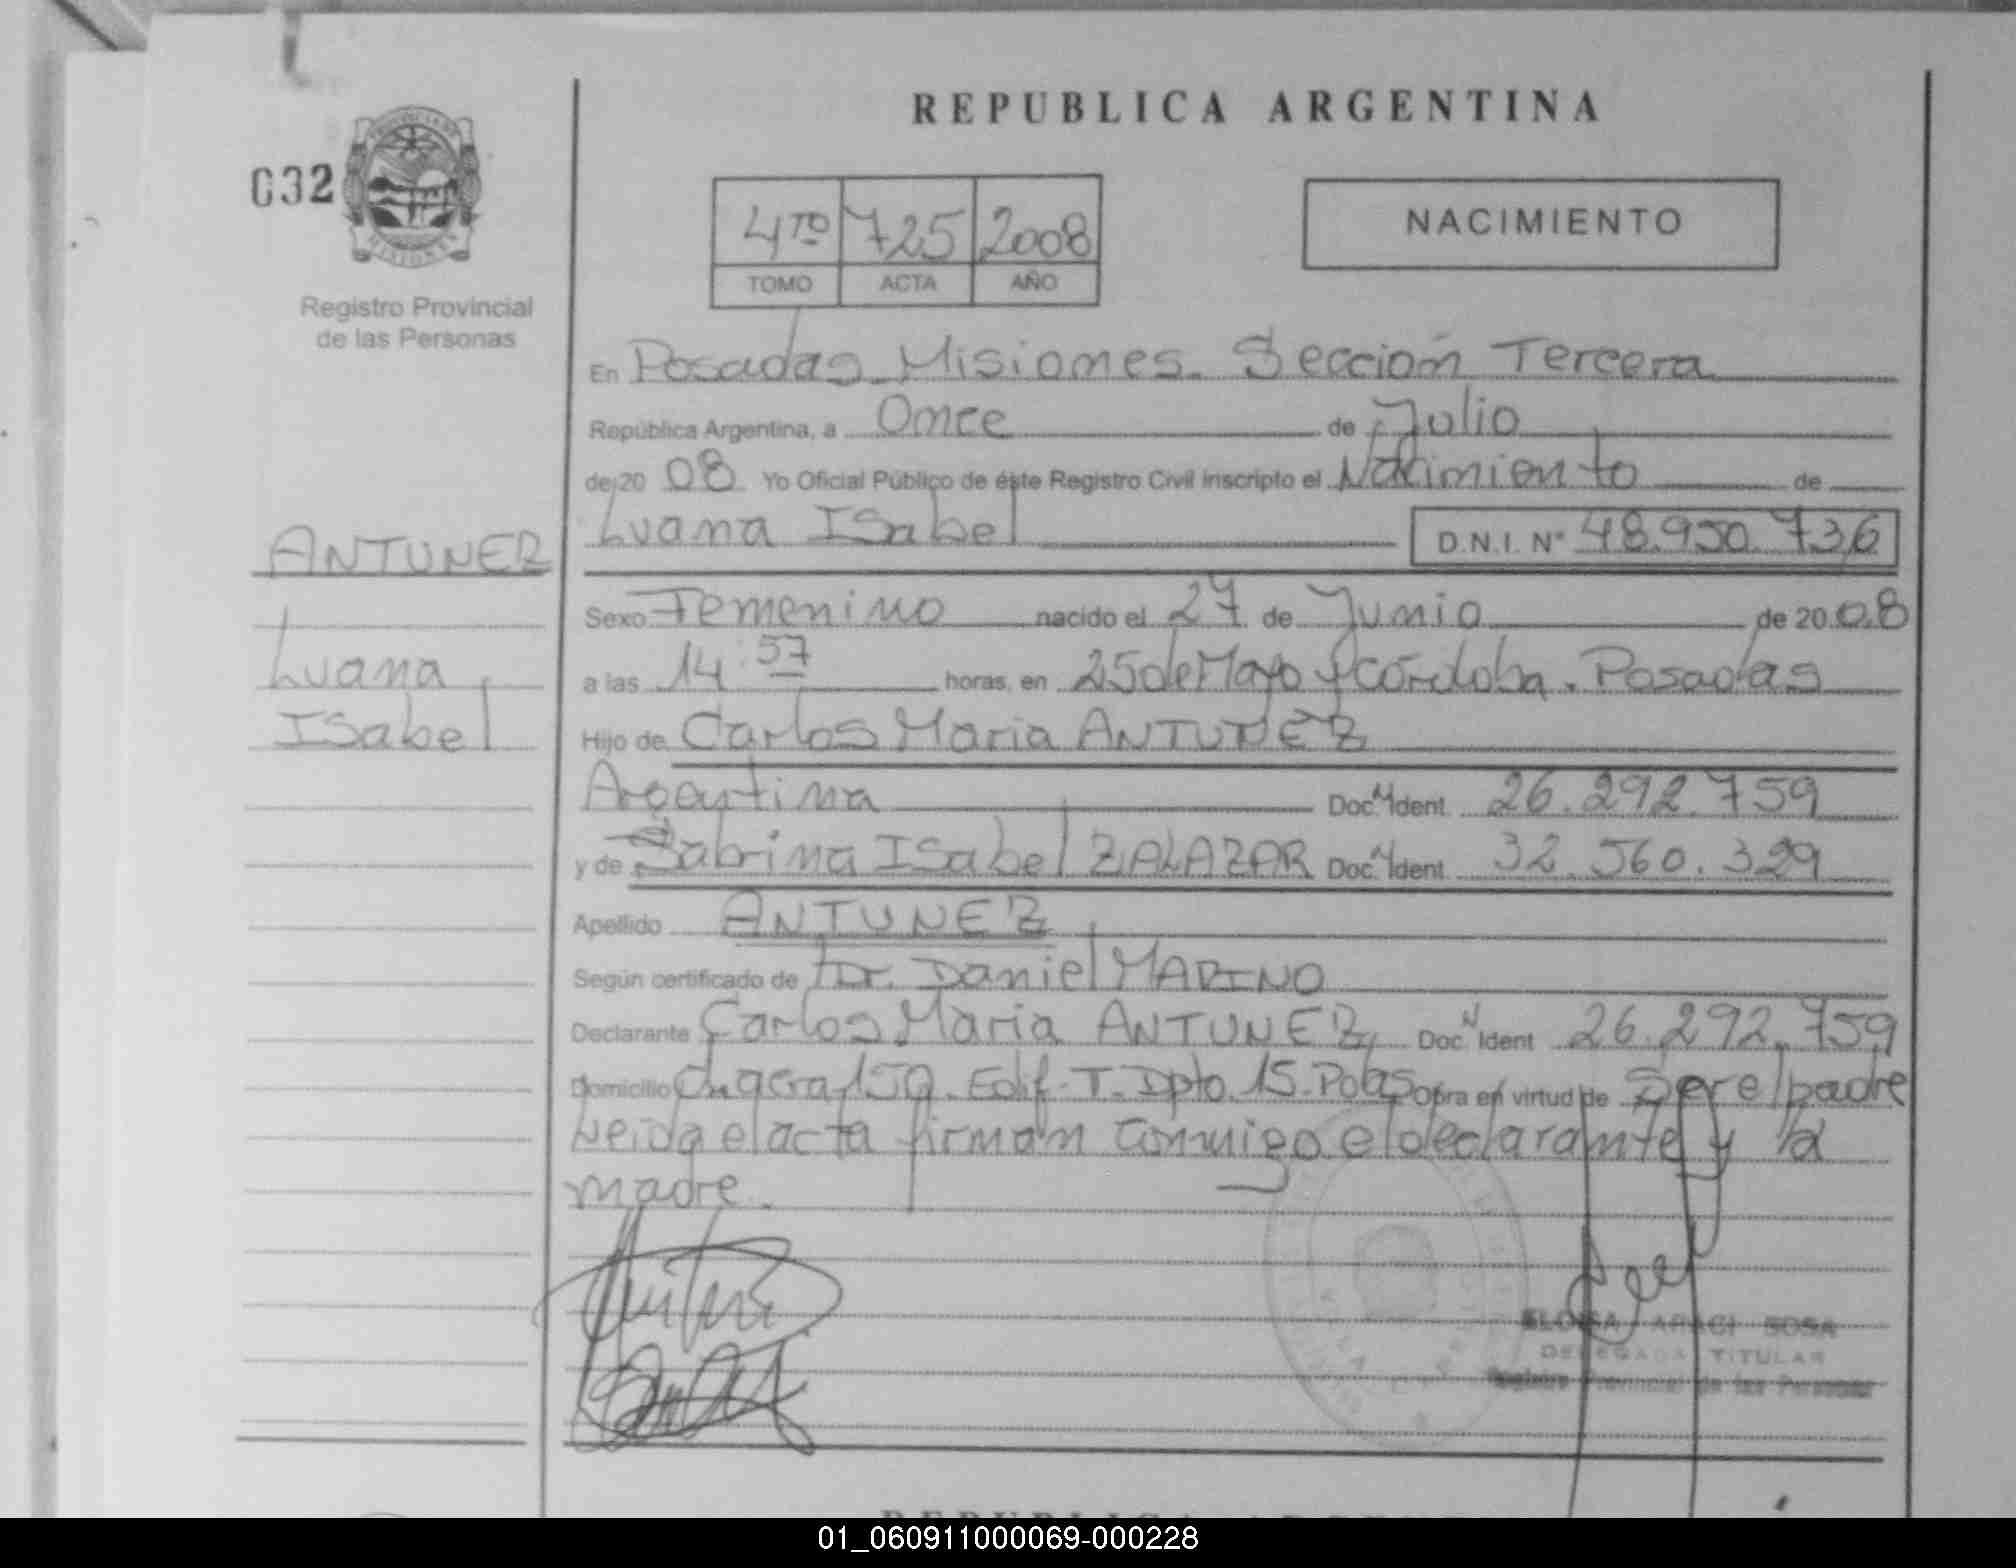 REPUBLICA ARGENTINA
032
4TO 725 2008
TOMO ACTA AÑO
NACIMIENTO
Registro Provincial
de las Personas
En Posadas Misiones. Sección Tercera
República Argentina, a Once de Julio
de 20 08 Yo Oficial Público de éste Registro Civil inscripto el Nacimiento de
Luana Isabel D.N.I. N° 48.950.736
ANTUNEZ
Luana
Isabel
Sexo Femenino nacido el 27 de Junio de 20 08
a las 14:57 horas, en 25 de Mayo y Córdoba. Posadas
Hijo de Carlos Maria ANTUNEZ
Argentina Doc. N Ident. 26.292.759
y de Sabrina Isabel ZALAZAR Doc. N Ident. 32.560.329
Apellido ANTUNEZ
Según certificado de Dr. Daniel MARINO
Declarante Carlos Maria ANTUNEZ Doc. N Ident 26.292.759
Domicilio Chacra 150. Edif. T. Dpto. 15. Pdas Obra en virtud de Ser el padre
Leida el acta firman conmigo el declarante y la
madre.
ELOISA ARACI SOSA
DELEGADA TITULAR
Registro Provincial de las Personas
01_060911000069-000228